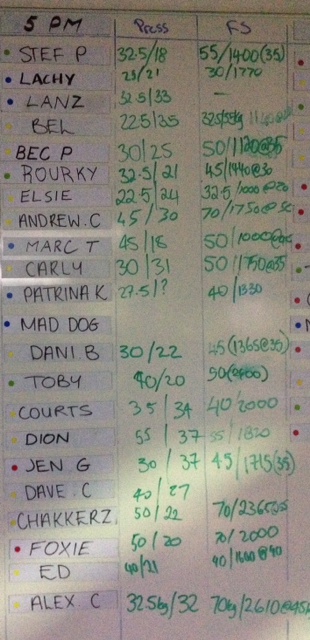 5 PM Press FS
STEF P 32.5/18 55/1400(35)
LACHY 23/21 30/1770
LANZ 32.5/33 –
BEL 22.5/35
BEC P 30/25 50/1120@35
ROURKY 32.5/21 45/1440@30
ELSIE 22.5/24 32.5/1000@20
ANDREW.C 45/30 70/1750@50
MARC T 45/18 50/1000@
CARLY 30/31 50/750@35
PATRINA K 27.5/? 40/1330
MAD DOG
DANI B 30/22 45(1365@35)
TOBY 40/20 50(2400)
COURTS 35/34 40/2000
DION 55/37 55/1820
JEN G 30/37 45/1715(35)
DAVE C 40/27
CHAKKERZ 50/22 70/2365@55
FOXIE 50/20 70/2000
ED 40/21 40/1600@40
ALEX C 32.5kg/32 70kg/2610@45k